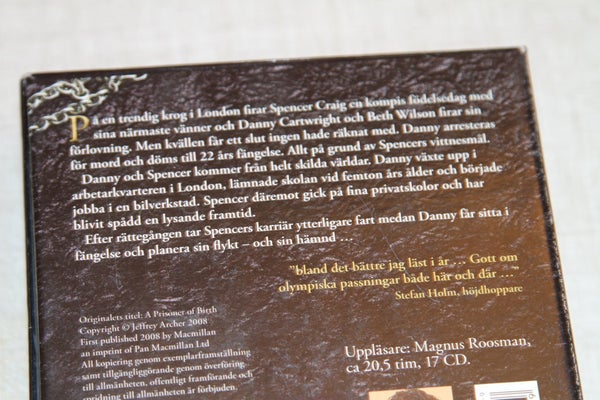 På en trendig krog i London firar Spencer Craig en kompis födelsedag med
sina närmaste vänner och Danny Cartwright och Beth Wilson firar sin
förlovning. Men kvällen får ett slut ingen hade räknat med. Danny arresteras
för mord och döms till 22 års fängelse. Allt på grund av Spencers vittnesmål.
Danny och Spencer kommer från helt skilda världar. Danny växte upp i
arbetarkvarteren i London, lämnade skolan vid femton års ålder och började
jobba i en bilverkstad. Spencer däremot gick på fina privatskolor och har
blivit spådd en lysande framtid.
Efter rättegången tar Spencers karriär ytterligare fart medan Danny får sitta i
fängelse och planera sin flykt – och sin hämnd ...
"bland det bättre jag läst i år ... Gott om
olympiska passningar både här och där ..."
Stefan Holm, höjdhoppare
Originalets titel: A Prisoner of Birth
Copyright © Jeffrey Archer 2008
First published 2008 by Macmillan
an imprint of Pan Macmillan Ltd
All kopiering genom exemplarframställning
samt tillgängliggörande genom överföring
till allmänheten, offentligt framförande och
spridning till allmänheten är förbjuden.
Uppläsare: Magnus Roosman,
ca 20,5 tim, 17 CD.